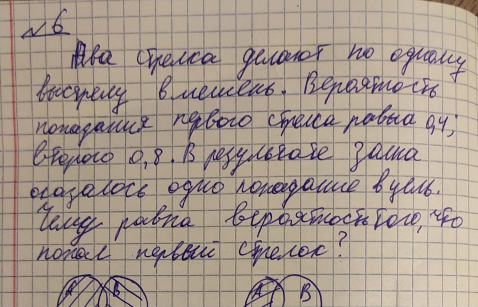 №6
Два стрелка делают по одному
выстрелу в мишень. Вероятность
попадания первого стрелка равна 0,4;
второго 0,8. В результате залпа
оказалось одно попадание в цель.
Чему равна вероятность того, что
попал первый стрелок?
A B A B